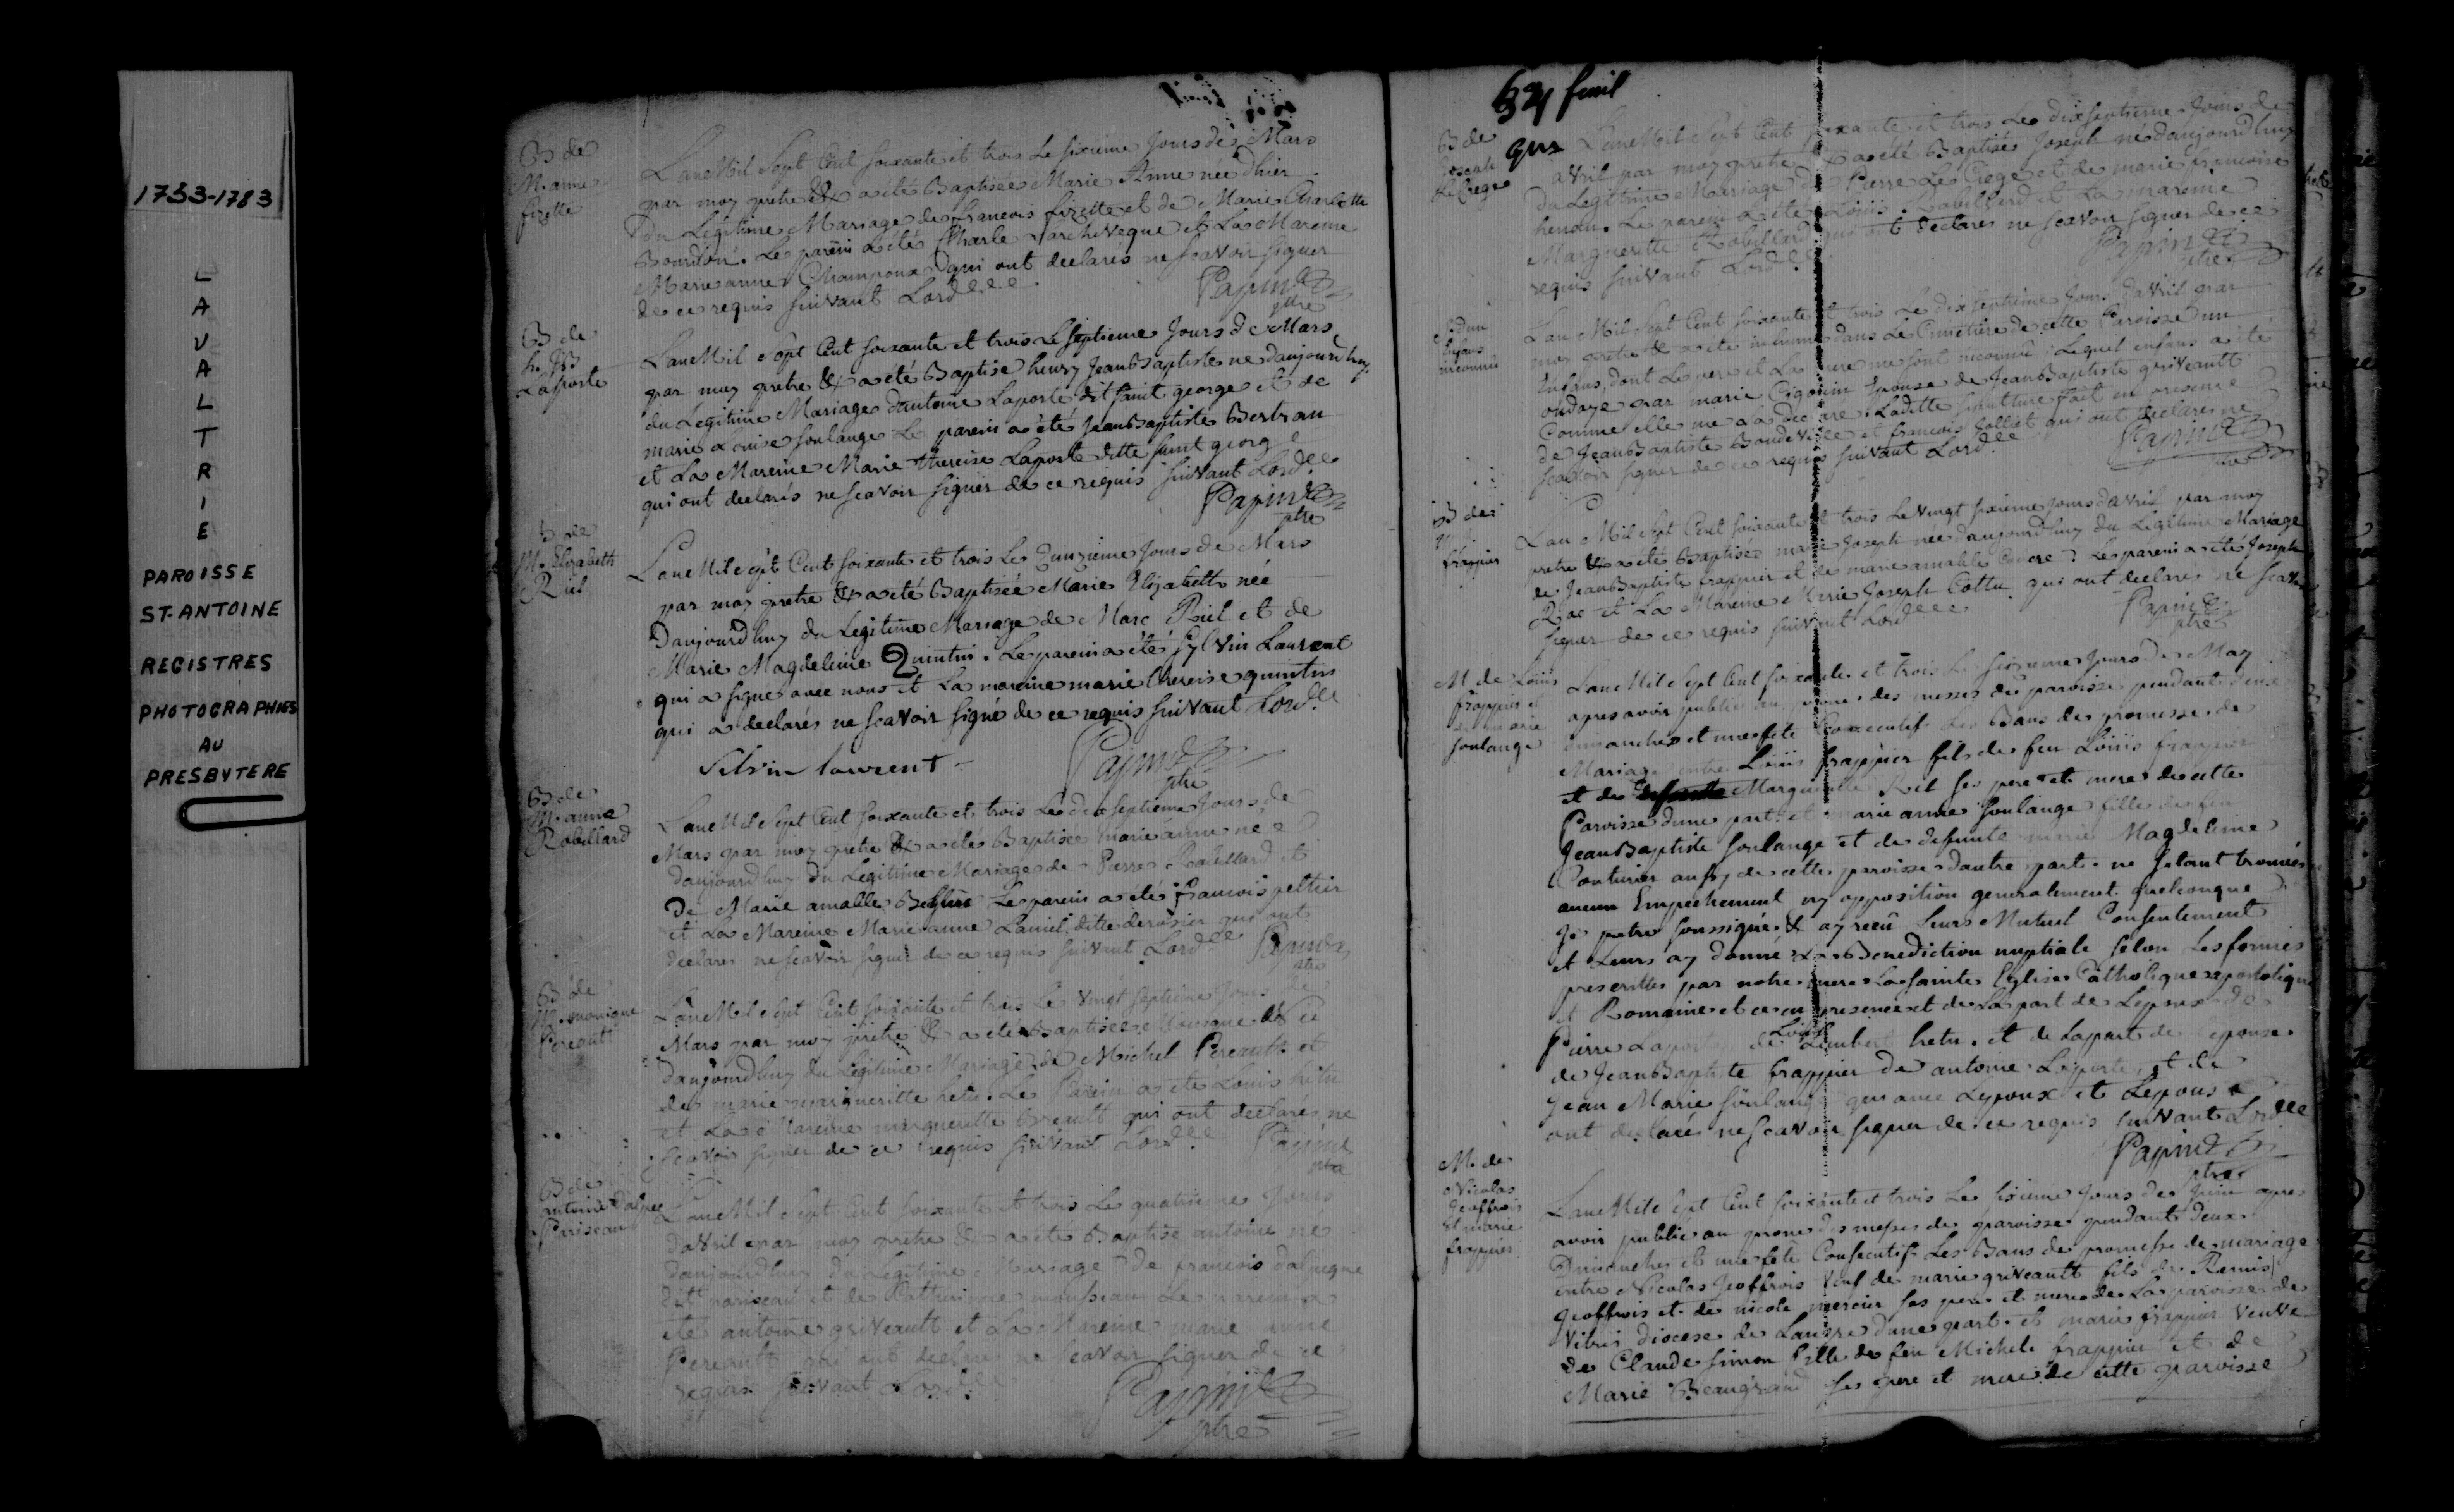 1753-1783
LAVALTRIE
PAROISSE
ST-ANTOINE
REGISTRES
PHOTOGRAPHIÉS
AU
PRESBYTERE
B de
M. anne
fizette
LaneMil Sept Cent soixante et trois Le sixieme Jours de Mars
par moy pretre &c a été Baptisée Marie Anne née Dhier
du Legitime Mariage de francois fizette et de Marie Charlotte
Bourdon. Le parein a été Charle Larcheveque et La Mareine
Marie anne Champoux qui ont declarés ne scavoir signer
de ce requis suivant Lord
Papin
ptre
B de
h. JB
Laporte
LaneMil Sept Cent soixante et trois Le septieme Jours de Mars
par moy pretre &c a été Baptisé henry JeanBaptiste ne daujourdhuy
du Legitime Mariage dantoine Laporte dit saint george et de
marie Louise soulange Le parein a été JeanBaptiste Bertran
et La Mareine Marie thereise Laporte ditte saint george
qui ont declarés ne scavoir signer de ce requis suivant Lord
Papin
ptre
B de
M. Elizabeth
Riel
LaneMil sept Cent soixante et trois Le quinzieme Jours de Mars
par moy pretre &c a été Baptisée Marie Elizabeth née
Daujourdhuy du Legitime Mariage de Marc Riel et de
Marie Magdeleine Quintin. Le parein a été sylvin Laurent
qui a signé avec nous et La mareine marie thereise quintin
qui a declarés ne scavoir signé de ce requis suivant Lord
Silvin laurent
Papin
ptre
B de
M. anne
Robillard
LaneMil Sept Cent soixante et trois Le dixseptieme Jours de
Mars par moy pretre &c a été Baptisée marie anne né
daujourdhuy du Legitime Mariage de Pierre Robillard et
De Marie amable Le parein a été francois peltier
et La Mareine Marie anne Laniel ditte derosier qui ont
declares ne scavoir signer de ce requis suivant Lord
Papin
ptre
B de
M. monique
Pereault
LaneMil Sept Cent soixante et trois Le vingt septieme Jours de
Mars par moy pretre &c a été Baptisée Monique née
daujourdhuy du Legitime Mariage de Michel Pereault et
de marie margueritte hetu. Le Parein a été Louis hetu
et La Mareine margueritte qui ont declarés ne
scavoir signer de ce requis suivant Lord
Papin
ptre
B de
antoine dalpec
Pariseau
LaneMil Sept Cent soixante et trois Le quatrieme Jours
davril par moy pretre &c a été Baptisé antoine né
daujourdhuy du Legitime Mariage De francois dalpeque
dit pariseau et de Catherinne mousseau Le parein a
été antoine griveault et La Mareine marie anne
Pereault qui ont declarés ne scavoir signer de ce
requis suivant Lord
Papin
ptre
feuil
B de
Joseph
Le Ciege
LaneMil Sept Cent soixante et trois Le dixseptieme Jours de
avril par moy pretre &c a été Baptisé Joseph né daujourdhuy
du Legitime Mariage de Pierre Le Ciege et de marie francoise
henau. Le parein a été Louis Robillard et La mareine
Margueritte Robillard qui ont declarés ne scavoir signer de ce
requis suivant Lord
Papin
ptre
S dun
Enfans
inconnû
Lan Mil Sept Cent soixante et trois Le dixseptieme Jours davril par
moy pretre &c a été inhumé dans Le Cimetiere de cette Paroisse un
Enfans, dont Le pere et La mere me sont inconnû. Lequel enfans a été
ondoye par marie Epouse de JeanBaptiste griveault
Comme elle me la declare. Laditte sepulture fait en presence
de JeanBaptiste Baudeville et francois Jolliet qui ont declarés ne
scavoir signer de ce requis suivant Lord
Papin
ptre
B de
M. J.
frappier
Lan Mil Sept Cent soixante et trois Le vingt sixieme Jours davril par moy
pretre &c a été Baptisée marie Joseph née daujourdhuy du Legitime Mariage
de JeanBaptiste frappier et de marie amable Le parein a été Joseph
et La Mareine Marie Joseph Cottu qui ont declarés ne scavoir
signer de ce requis suivant Lord
Papin
ptre
M. de Louis
frappier et
de marie
soulange
LaneMil Sept Cent soixante et trois Le seizieme Jours de May
apres avoir publié au prone des messes de paroisse pendant deux
dimanches et une fete Consecutif Les Bans de promesse de
Mariage entre Louis frappier fils de feu Louis frappier
et de Margueritte Ses pere et mere de cette
Paroisse dune part, et marie anne soulange fille de feu
JeanBaptiste soulange et de defunte marie Magdeleine
Couturier aussy de cette paroisse dautre part. ne setant trouvés
aucun Empechement ny opposition generalement quelconque
Je pretre soussigné &c ay recû Leurs Mutuel Consentement
et Leurs ay donné La Benediction nuptiale selon Les formes
prescrittes par notre mere La sainte Eglise Catholique apostolique
et Romaine et ce en presence et de La part de Lepoux de
Pierre Laporte de Louis Lambert hetu. et de Lapart de Lepouse.
de JeanBaptiste frappier De antoine Laporte, et de
Jean Marie soulange qui avec Lepoux et Lepouse
ont declarés ne scavoir signer de ce requis suivant Lord
Papin
ptre
M. de
Nicolas
Jeoffrois
et marie
frappier
LaneMil Sept Cent soixante et trois Le sixieme Jours de Juin apres
avoir publié au prone des messes de paroisse pendant deux
Dimanches et une fete Consecutifs Les Bans de promesse de mariage
entre Nicolas Jeoffrois veuf de marie griveault fils de Remis
Jeoffrois et de nicole mercier ses pere et mere de La paroisse de
Vitris diocese de Langre dune part. et marie frappier veuve
de Claude simon fille de feu Michele frappier et de
Marie Beaugrand ses pere et mere de cette paroisse